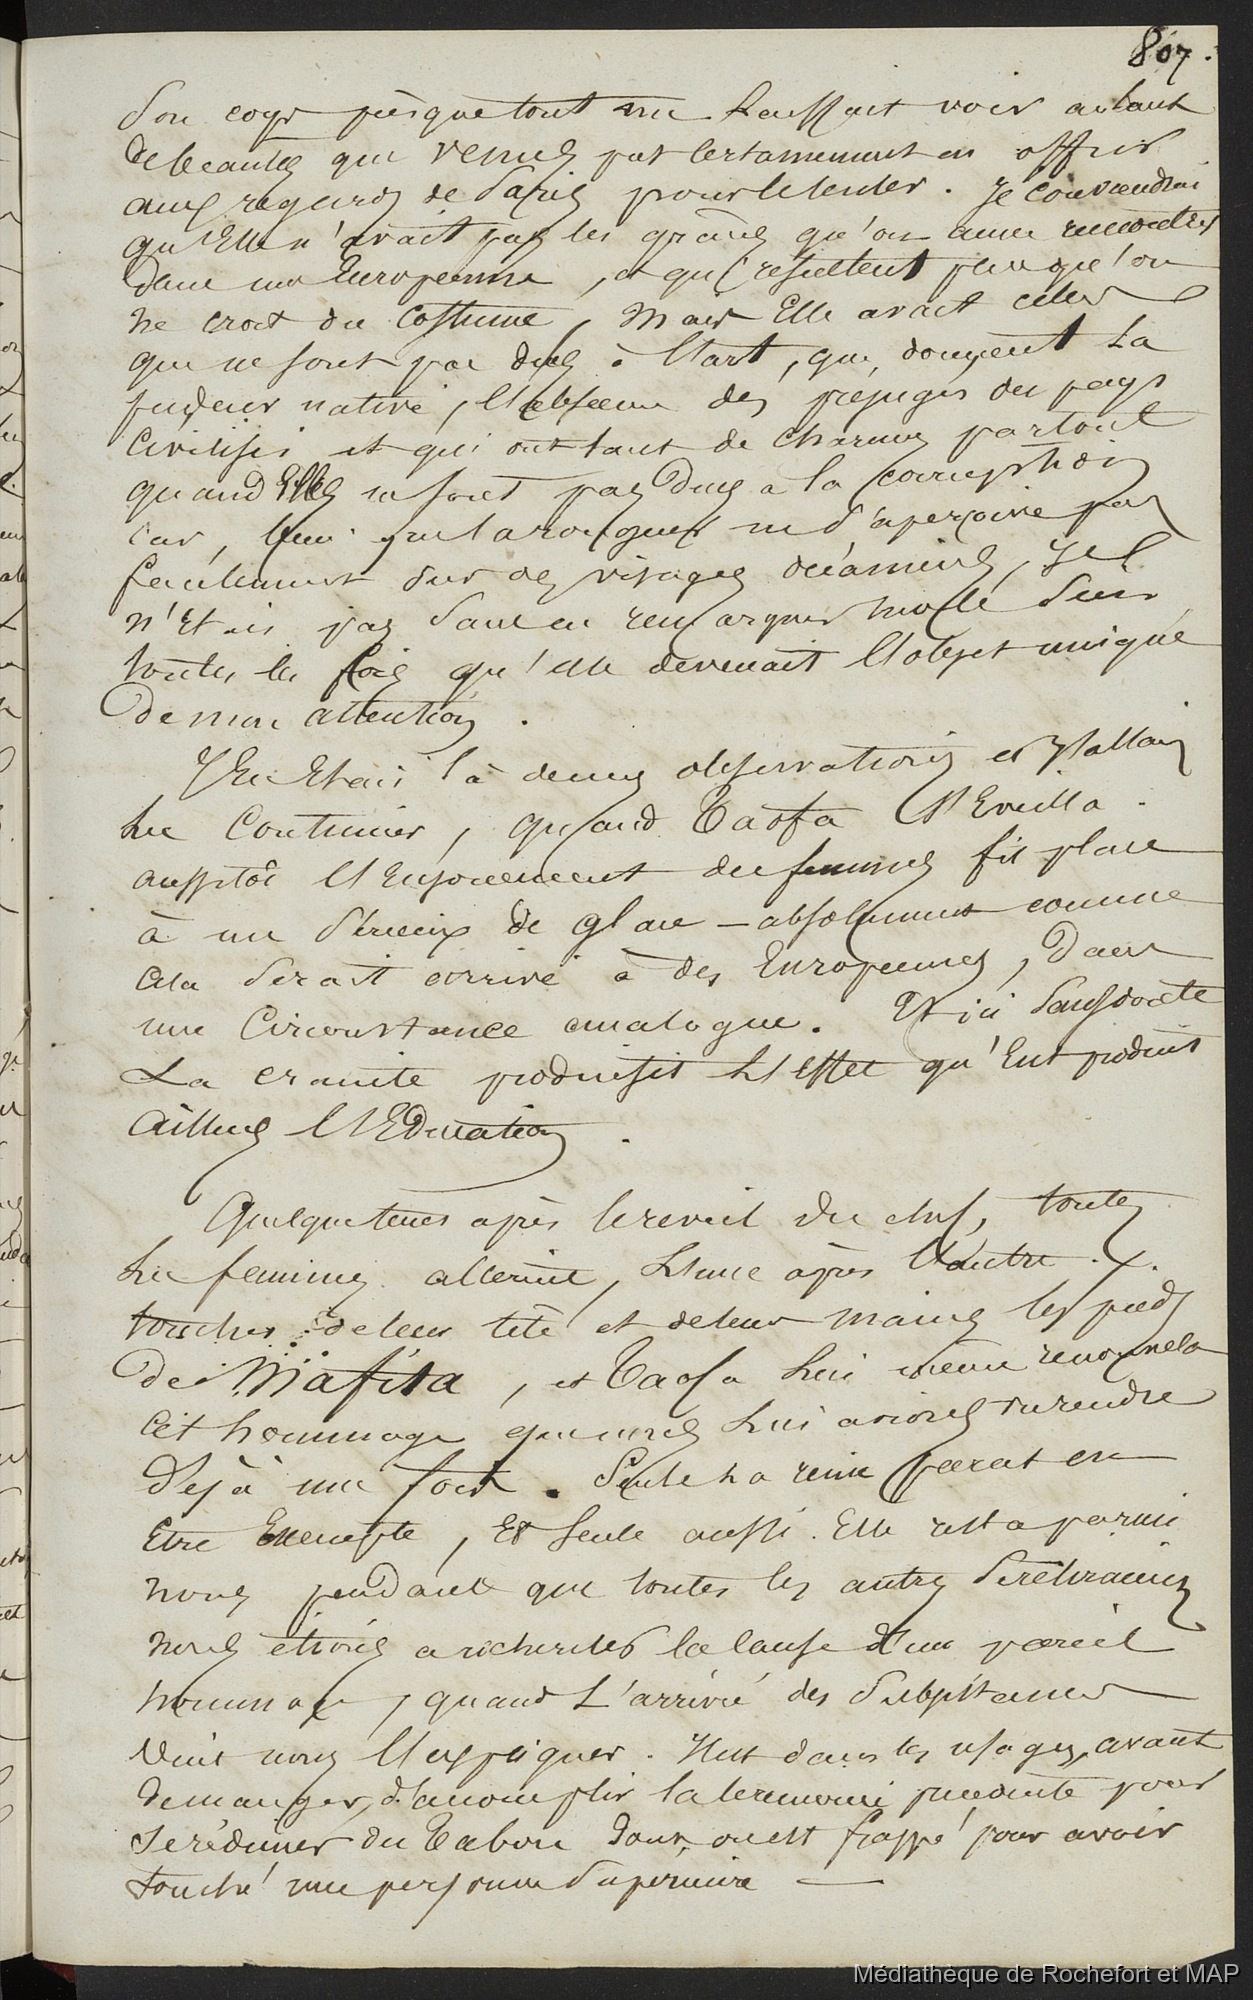 807.
Son corps presque tout nu laissait voir autant
de beautés que Venus put certainement en offrir
aux regards de Paris pour le tenter. Je conviendrai
qu'Elle n'avait pas les grâces qu'on aime rencontrer
dans une Européenne, et qui résultent plus qu'on
ne croit du costume, mais Elle avait celles
qui ne sont pas dues à l'art, que donnent la
pudeur native, l'absence des préjugés des pays
civilisés et qui ont tant de charmes partout
quand Elles ne sont pas dues à la corruption
car, bien que la rougeur ne s'aperçoive pas
facilement sur des visages , Je
n'Etais pas sans en remarquer sur
toutes les fois qu'elle devenait l'objet unique
de mon attention.
J'En Etais là de mes observations et J'allais
les Continuer, quand Taofa s'Eveilla.
aussitôt l'Enjouement des femmes fit place
à un sérieux de glace – absolument comme
cela serait arrivé à des Européennes, dans
une Circonstance analogue. Et ici sans doute
La crainte produisit l'effet qu'Eut produit
ailleurs l'Education.
Quelque tems après le reveil du chef, toutes
les femmes allèrent, l'une après l'autre
toucher de leur tête et de leurs mains les pieds
de Mafita, et Taofa lui même renouvela
cet hommage que nous lui avions vu rendre
déjà une fois. Seule la reine parut en
Etre Exempte, Et seule aussi Elle resta parmi
nous pendant que toutes les autres se retiraient
nous étions a rechercher la cause d'un pareil
hommage, quand L'arrivée des subsistances
vint nous l'expliquer. Il est dans les usages, avant
de manger, d'accomplir la ceremonie precedente pour
se rédimer du Tabou dont on est frappé pour avoir
touché une personne superieure —
Médiathèque de Rochefort et MAP